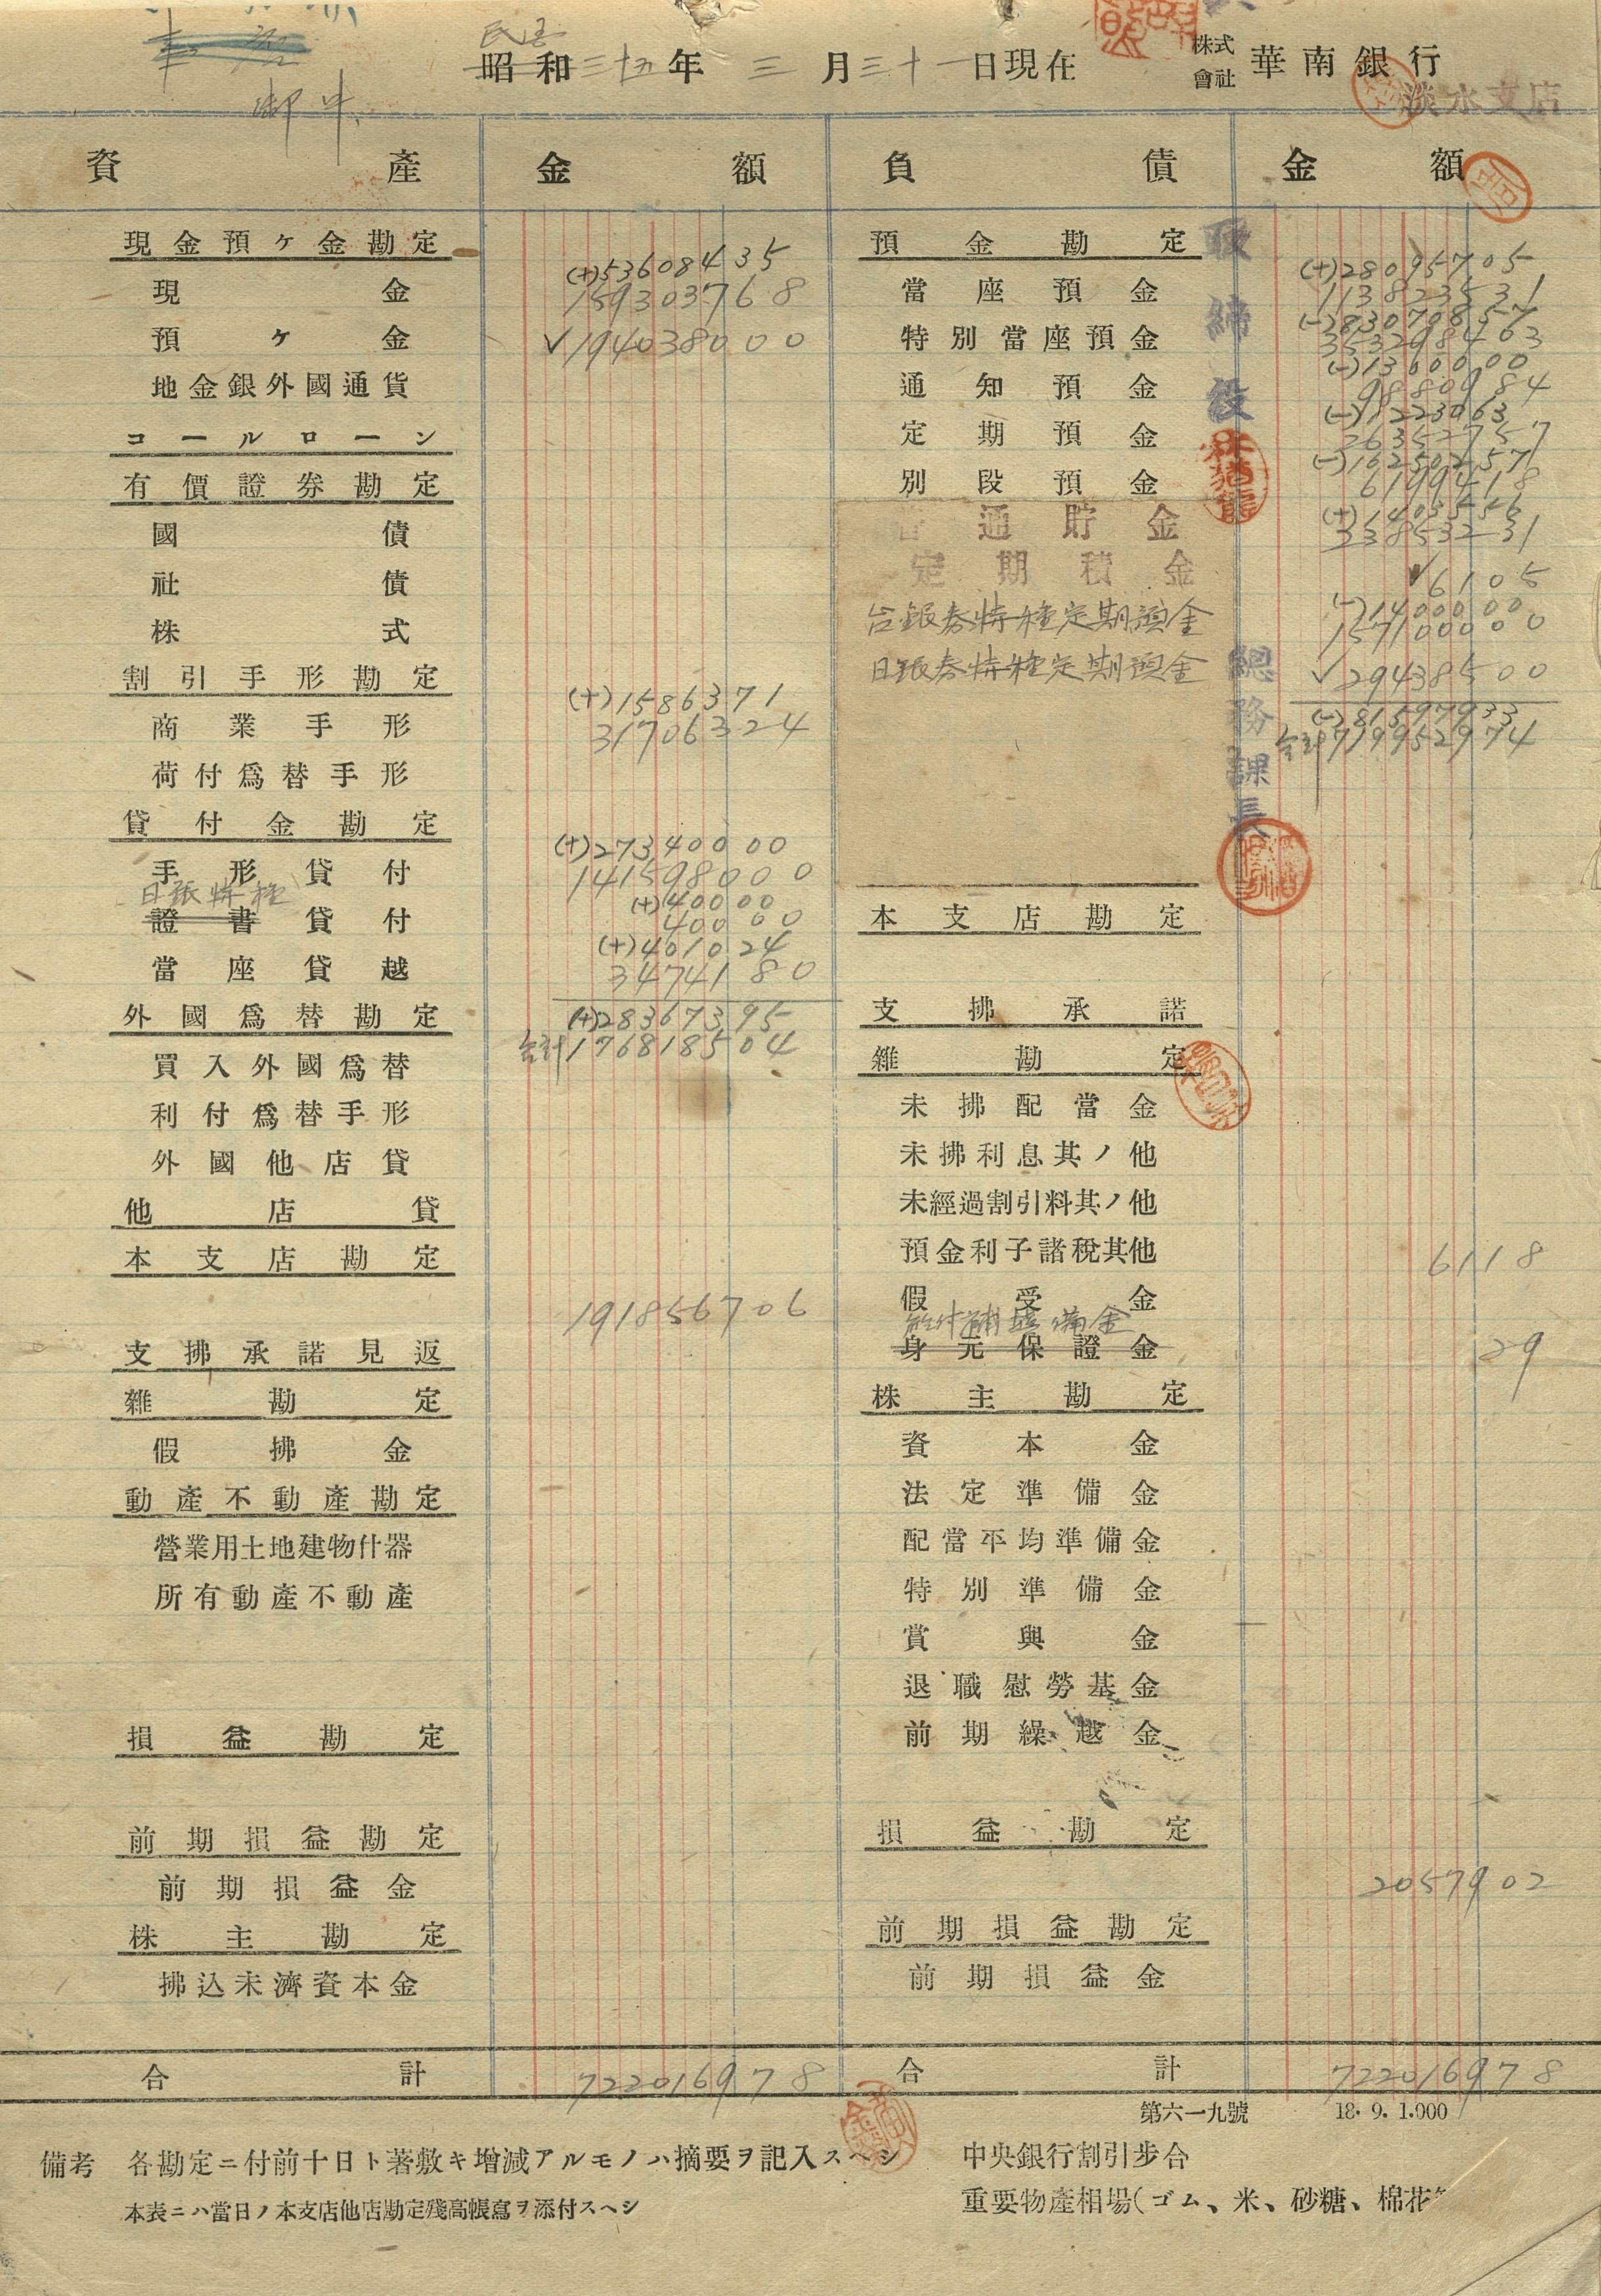 民國
昭和三十五年 三 月三十一日現在
株式會社 華南銀行
淡水支店
資產 金額 負債 金額
現金預ケ金勘定
(+)53608435
現金 159303768
預ケ金 ✓194038000
地金銀外國通貨
コールローン
有價證券勘定
國債
社債
株式
割引手形勘定
(+)1586371
商業手形 31706324
荷付爲替手形
貸付金勘定
(+)27340000
手形貸付 141598000
日銀特種
(+)40000
證書貸付 40000
(+)401024
當座貸越 3474180
外國爲替勘定
(+)28367395
合計176818504
買入外國爲替
利付爲替手形
外國他店貸
他店貸
本支店勘定
191856706
支拂承諾見返
雜勘定
假拂金
動產不動產勘定
營業用土地建物什器
所有動產不動產
損益勘定
前期損益勘定
前期損益金
株主勘定
拂込未濟資本金
合計 722016978
預金勘定
(+)28095705
當座預金 113823531
(-)83079857
特別當座預金 353298463
(-)1300000
通知預金 9880984
(-)1223063
定期預金 26352757
(-)16250257
別段預金 6199418
(+)1403556
通貯金 33853231
定期積金 ✓6105
(-)1400000
台銀券特種定期預金 157100000
日銀券特種定期預金 ✓29438500
(-)81597933
合計719952974
本支店勘定
支拂承諾
雜勘定
未拂配當金
未拂利息其ノ他
未經過割引料其ノ他
預金利子諸稅其他 6118
假受金
給付補塡備金
身元保證金 29
株主勘定
資本金
法定準備金
配當平均準備金
特別準備金
賞與金
退職慰勞基金
前期繰越金
損益勘定
2057902
前期損益勘定
前期損益金
合計 722016978
取締役
林猶龍
總務課長
第六一九號 18.9.1.000
備考 各勘定ニ付前十日ト著敷キ增減アルモノハ摘要ヲ記入スヘシ
本表ニハ當日ノ本支店他店勘定殘高帳寫ヲ添付スヘシ
中央銀行割引步合
重要物產相場(ゴム、米、砂糖、棉花